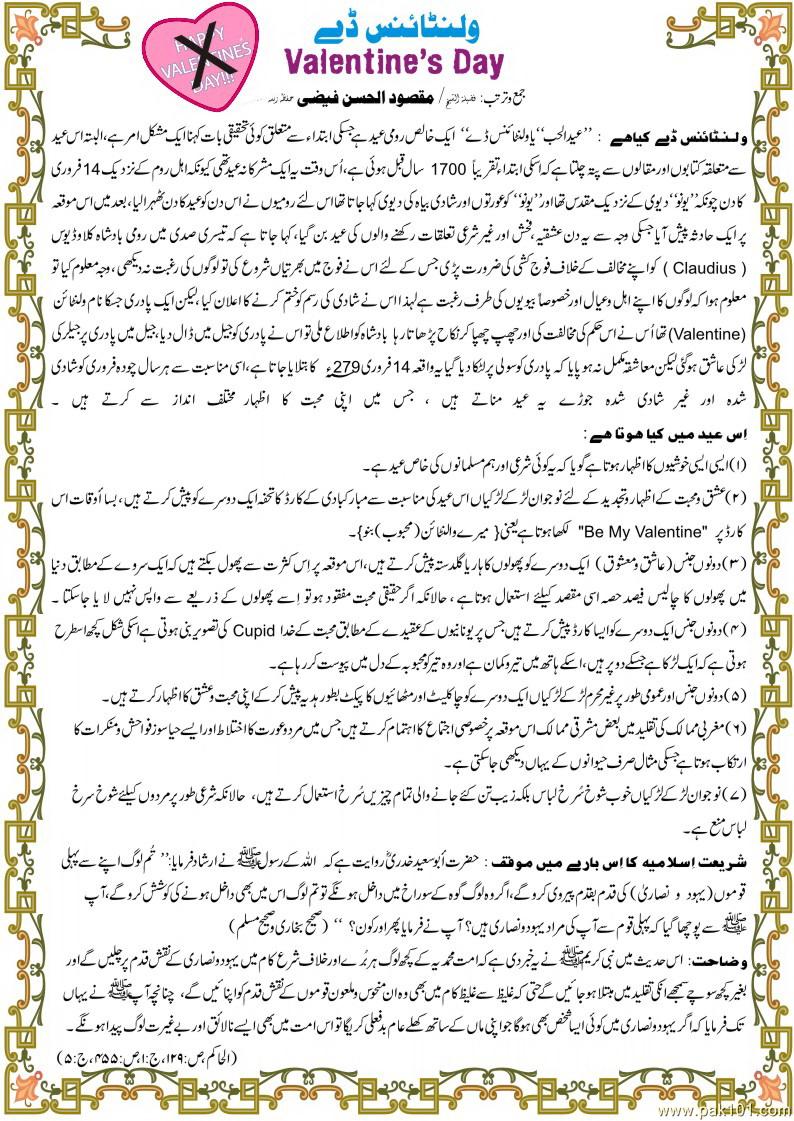 ولنٹائنس ڈے
HAPPY
VALENTINES
DAY!!!
Valentine's Day
جمع وترتیب: فضیلۃ الشیخ/ مقصود الحسن فیضی حفظہ اللہ
ولنٹائنس ڈے کیاھے : ’’عید الحب‘‘ یا ولنٹائنس ڈے‘‘ ایک خالص رومی عید ہے جسکی ابتداء سے متعلق کوئی تحقیقی بات کہنا ایک مشکل امر ہے، البتہ اس عید
سے متعلقہ کتابوں اور مقالوں سے پتہ چلتا ہے کہ اسکی ابتداء تقریباً 1700 سال قبل ہوئی ہے، اُس وقت یہ ایک مشرکانہ عید تھی کیونکہ اہل روم کے نزدیک 14 فروری
کا دن چونکہ ’’یونو‘‘ دیوی کے نزدیک مقدس تھا اور ’’یونو‘‘ کو عورتوں اور شادی بیاہ کی دیوی کہا جاتا تھا اس لئے رومیوں نے اس دن کو عید کا دن ٹھہرالیا، بعد میں اس موقعہ
پر ایک حادثہ پیش آیا جسکی وجہ سے یہ دن عشقیہ، فحش اور غیر شرعی تعلقات رکھنے والوں کی عید بن گیا، کہا جاتا ہے کہ تیسری صدی میں رومی بادشاہ کلاوڈیوس
( Claudius ) کو اپنے مخالف کے خلاف فوج کشی کی ضرورت پڑی جس کے لئے اس نے فوج میں بھرتیاں شروع کی تو لوگوں کی رغبت نہ دیکھی، وجہ معلوم کیا تو
معلوم ہوا کہ لوگوں کا اپنے اہل وعیال اور خصوصاً بیویوں کی طرف رغبت ہے لہذا اس نے شادی کی رسم کو ختم کرنے کا اعلان کیا، لیکن ایک پادری جسکا نام ولنٹائن
(Valentine) تھا اُس نے اس حکم کی مخالفت کی اور چھپ چھپا کر نکاح پڑھاتا رہا بادشاہ کو اطلاع ملی تو اس نے پادری کو جیل میں ڈال دیا، جیل میں پادری پر جیلر کی
لڑکی عاشق ہوگئی لیکن معاشقہ مکمل نہ ہو پایا کہ پادری کو سولی پر لٹکا دیا گیا یہ واقعہ 14 فروری 279ء کا بتلایا جاتا ہے، اسی مناسبت سے ہر سال چودہ فروری کو شادی
شدہ اور غیر شادی شدہ جوڑے یہ عید مناتے ہیں ، جس میں اپنی محبت کا اظہار مختلف انداز سے کرتے ہیں ۔
اِس عید میں کیا ھوتا ھے :
(۱) ایسی ایسی خوشیوں کا اظہار ہوتا ہے گویا کہ یہ کوئی شرعی اور ہم مسلمانوں کی خاص عید ہے۔
(۲) عشق ومحبت کے اظہار وتجدید کے لئے نوجوان لڑکے لڑکیاں اس عید کی مناسبت سے مبارکبادی کے کارڈ کا تحفہ ایک دوسرے کو پیش کرتے ہیں، بسا اُوقات اس
کارڈ پر "Be My Valentine" لکھا ہوتا ہے یعنی {میرے والنٹائن (محبوب) بنو}۔
(۳) دونوں جنس (عاشق ومعشوق) ایک دوسرے کو پھولوں کا ہار یا گلدستہ پیش کرتے ہیں، اس موقعہ پر اِس کثرت سے پھول بکتے ہیں کہ ایک سروے کے مطابق دنیا
میں پھولوں کا چالیس فیصد حصہ اسی مقصد کیلئے استعمال ہوتا ہے ، حالانکہ اگر حقیقی محبت مفقود ہو تو اِسے پھولوں کے ذریعے سے واپس نہیں لا یا جاسکتا ۔
(۴) دونوں جنس ایک دوسرے کو ایسا کارڈ پیش کرتے ہیں جس پر یونانیوں کے عقیدے کے مطابق محبت کے خدا Cupid کی تصویر بنی ہوتی ہے اسکی شکل کچھ اسطرح
ہوتی ہے کہ ایک لڑکا ہے جسکے دو پر ہیں، اسکے ہاتھ میں تیر وکمان ہے اور وہ تیر کو محبوبہ کے دل میں پیوست کر رہا ہے۔
(۵) دونوں جنس اور عمومی طور پر غیر محرم لڑکے لڑکیاں ایک دوسرے کو چاکلیٹ اور مٹھائیوں کا پیکٹ بطور ہدیہ پیش کرکے اپنی محبت وعشق کا اظہار کرتے ہیں۔
(۶) مغربی ممالک کی تقلید میں بعض مشرقی ممالک اس موقعہ پر خصوصی اجتماع کا اہتمام کرتے ہیں جس میں مرد وعورت کا اختلاط اور ایسے حیا سوز فواحش ومنکرات کا
ارتکاب ہوتا ہے جسکی مثال صرف حیوانوں کے یہاں دیکھی جاسکتی ہے۔
(۷) نوجوان لڑکے لڑکیاں خوب شوخ سُرخ لباس بلکہ زیب تن کئے جانے والی تمام چیزیں سُرخ استعمال کرتے ہیں، حالانکہ شرعی طور پر مردوں کیلئے شوخ سرخ
لباس منع ہے۔
شریعت اِسلامیہ کا اِس بارے میں موقف : حضرت اُبو سعید خدریؓ روایت ہے کہ اللہ کے رسول ﷺ نے ارشاد فرمایا: ’’ تُم لوگ اپنے سے پہلی
قوموں (یہود و نصاریٰ) کی قدم بقدم پیروی کروگے، اگر وہ لوگ گوہ کے سوراخ میں داخل ہونگے تو تم لوگ اس میں بھی داخل ہونے کی کوشش کروگے، آپ
ﷺ سے پوچھا گیا کہ پہلی قوم سے آپ کی مراد یہود ونصاریٰ ہیں؟ آپ نے فرمایا پھر اور کون؟ ‘‘ (صحیح بخاری وصحیح مسلم)
وضاحت: اس حدیث میں نبی کریم ﷺ نے یہ خبر دی ہے کہ امت محمدیہ کے کچھ لوگ ہر بُرے اور خلاف شرع کام میں یہود ونصاریٰ کے نقش قدم پر چلیں گے اور
بغیر کچھ سوچے سمجھے انکی تقلید میں مبتلا ہو جائیں گے حتی کہ غلیظ سے غلیظ کام میں بھی وہ ان منحوس وملعون قوموں کے نقش قدم کو اپنائیں گے، چنانچہ آپ ﷺ نے یہاں
تک فرمایا کہ اگر یہود ونصاریٰ میں کوئی ایسا شخص بھی ہوگا جو اپنی ماں کے ساتھ کھلے عام بدفعلی کریگا تو اس امت میں بھی ایسے نالائق اور بے غیرت لوگ پیدا ہونگے ۔
(الحاکم،ص:۱۲۹،ج:۱،ص:۴۵۵،ج:۵)
www.pak101.com